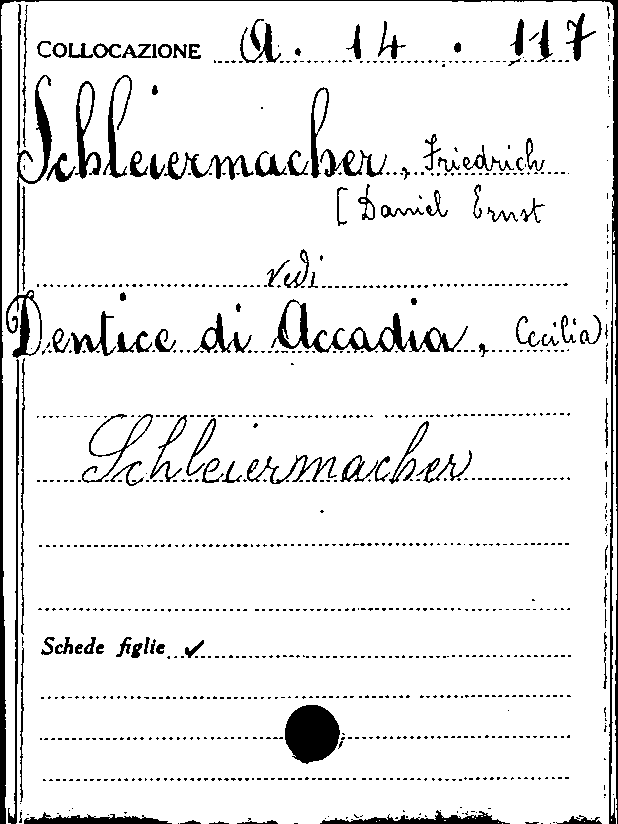 COLLOCAZIONE A. 14 . 117
Schleiermacher, Friedrich
[Daniel Ernst
vedi
Dentice di Accadia, Cecilia
Schleiermacher
Schede figlie ✓